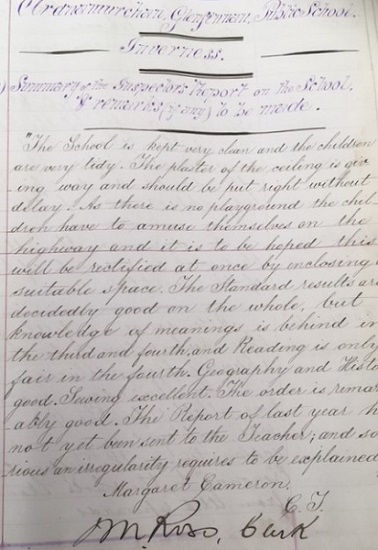 Ardnamurchan, Glenfinnan, Public School.
Inverness.
) Summary of the Inspectors Report on the School,
& remarks (if any) to be made.
"The School is kept very clean and the children
are very tidy. The plaster of the ceiling is giv
ing way and should be put right without
delay. As there is no playground the chil-
dren have to amuse themselves on the
highway and it is to be hoped this
will be rectified at once by enclosing a
suitable space. The Standard results are
decidedly good on the whole, but
knowledge of meanings is behind in
the third and fourth, and Reading is only
fair in the fourth. Geography and Histo
good. Sewing excellent. The order is remar
ably good. The Report of last year h
not yet been sent to the Teacher; and so
rious an irregularity requires to be explained
Margaret Cameron.
C. T.
M. Ross, Clerk